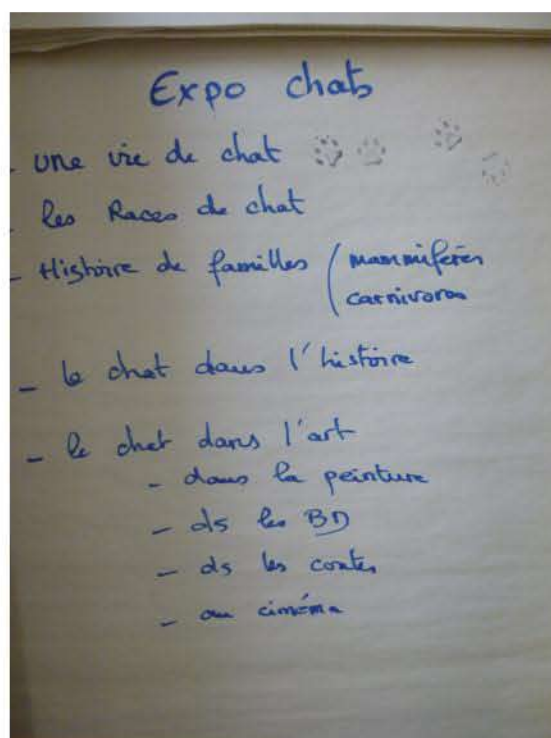 Expo chats
- une vie de chat
- les Races de chat
- Histoire de familles ( mammifères
carnivores
- le chat dans l'histoire
- le chat dans l'art
- dans la peinture
- ds les BD
- ds les contes
- au cinéma